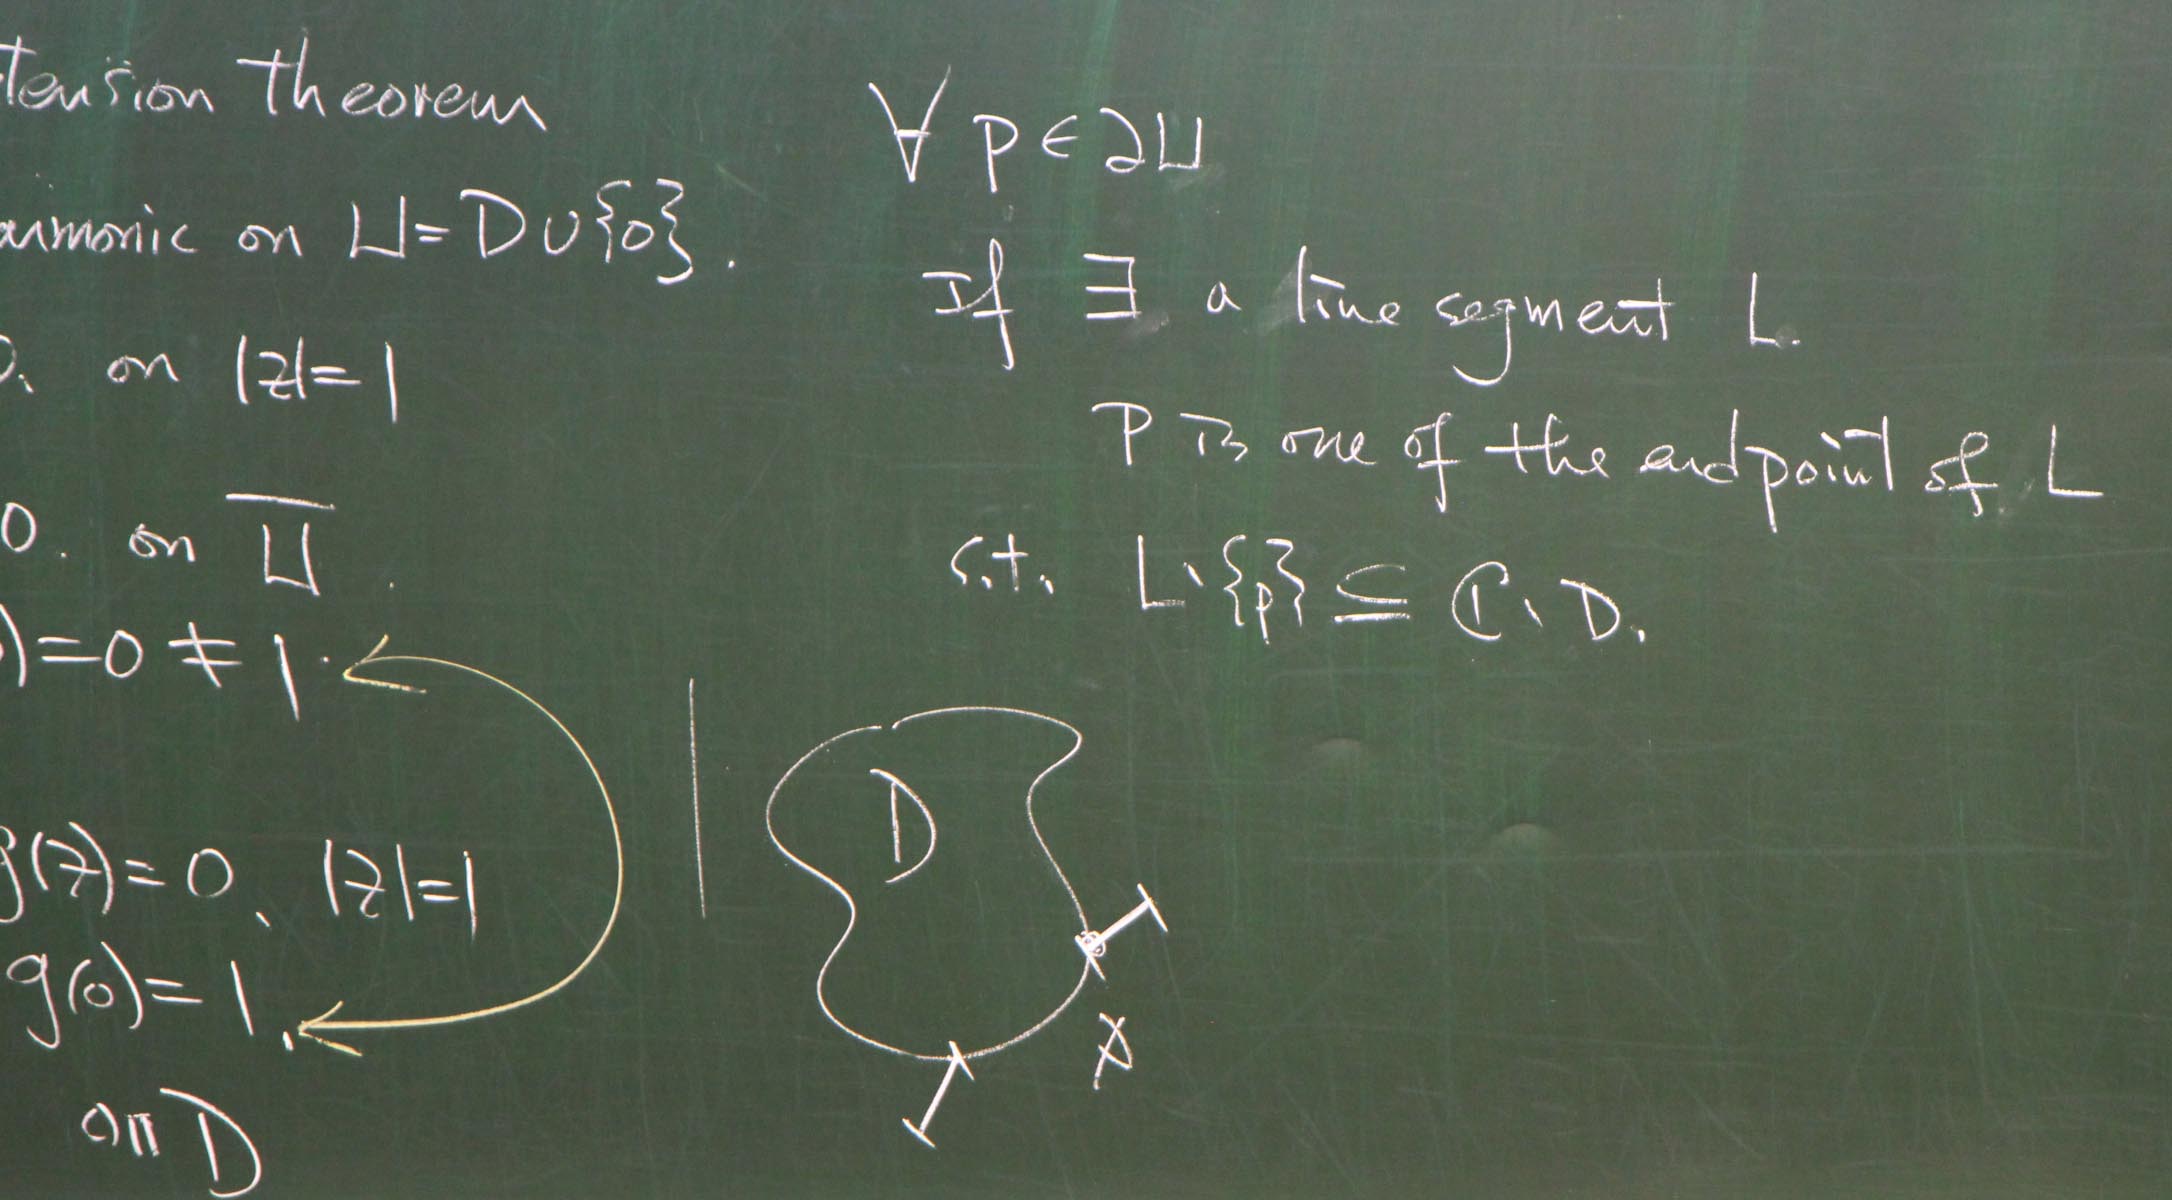 tension theorem
armonic on U = D ∪ {0}.
0. on |z| = 1
0. on U̅.
) = 0 ≠ 1.
g(z) = 0, |z| = 1
g(0) = 1.
on D
∀ p ∈ ∂U
If ∃ a line segment L.
P is one of the endpoint of L
s.t. L∖{p} ⊆ ℂ∖D.
D